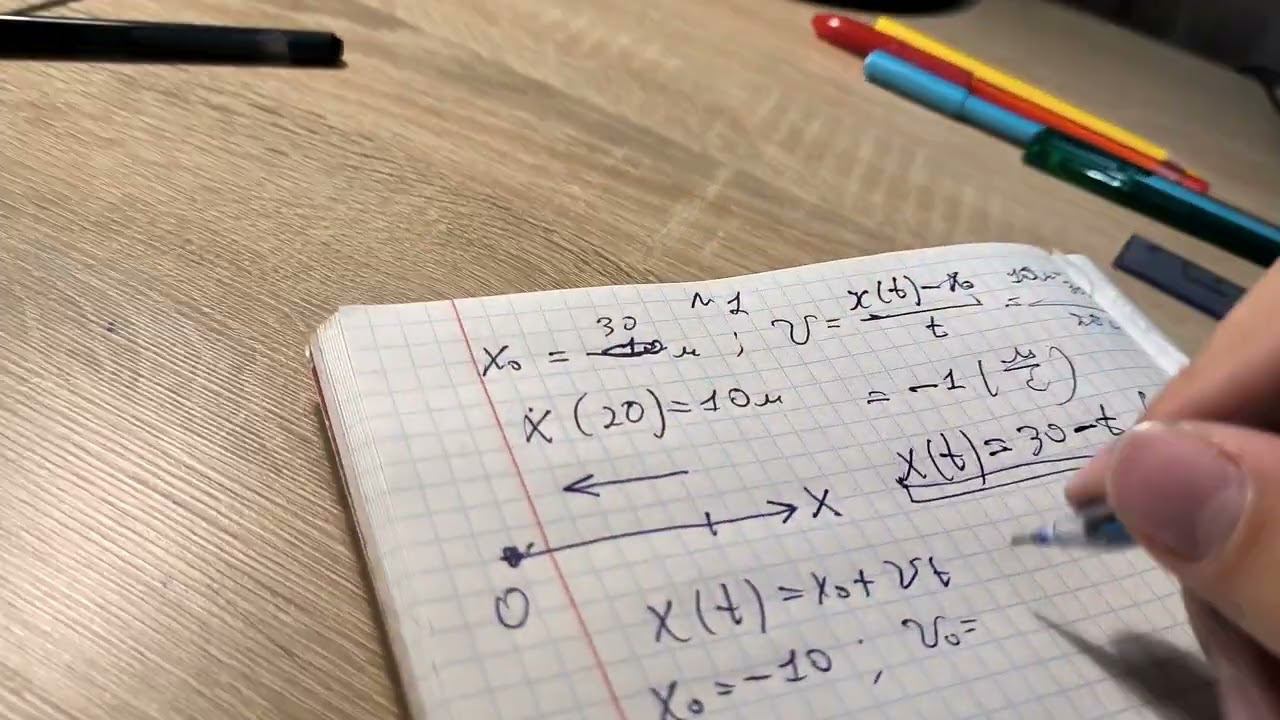 № 1
x₀ = 30 м ; v = (x(t) − x₀)/t =
x(20) = 10 м = −1 (м/с)
x(t) = 30 − t
X
O
x(t) = x₀ + vt
x₀ = −10 ; v₀ =